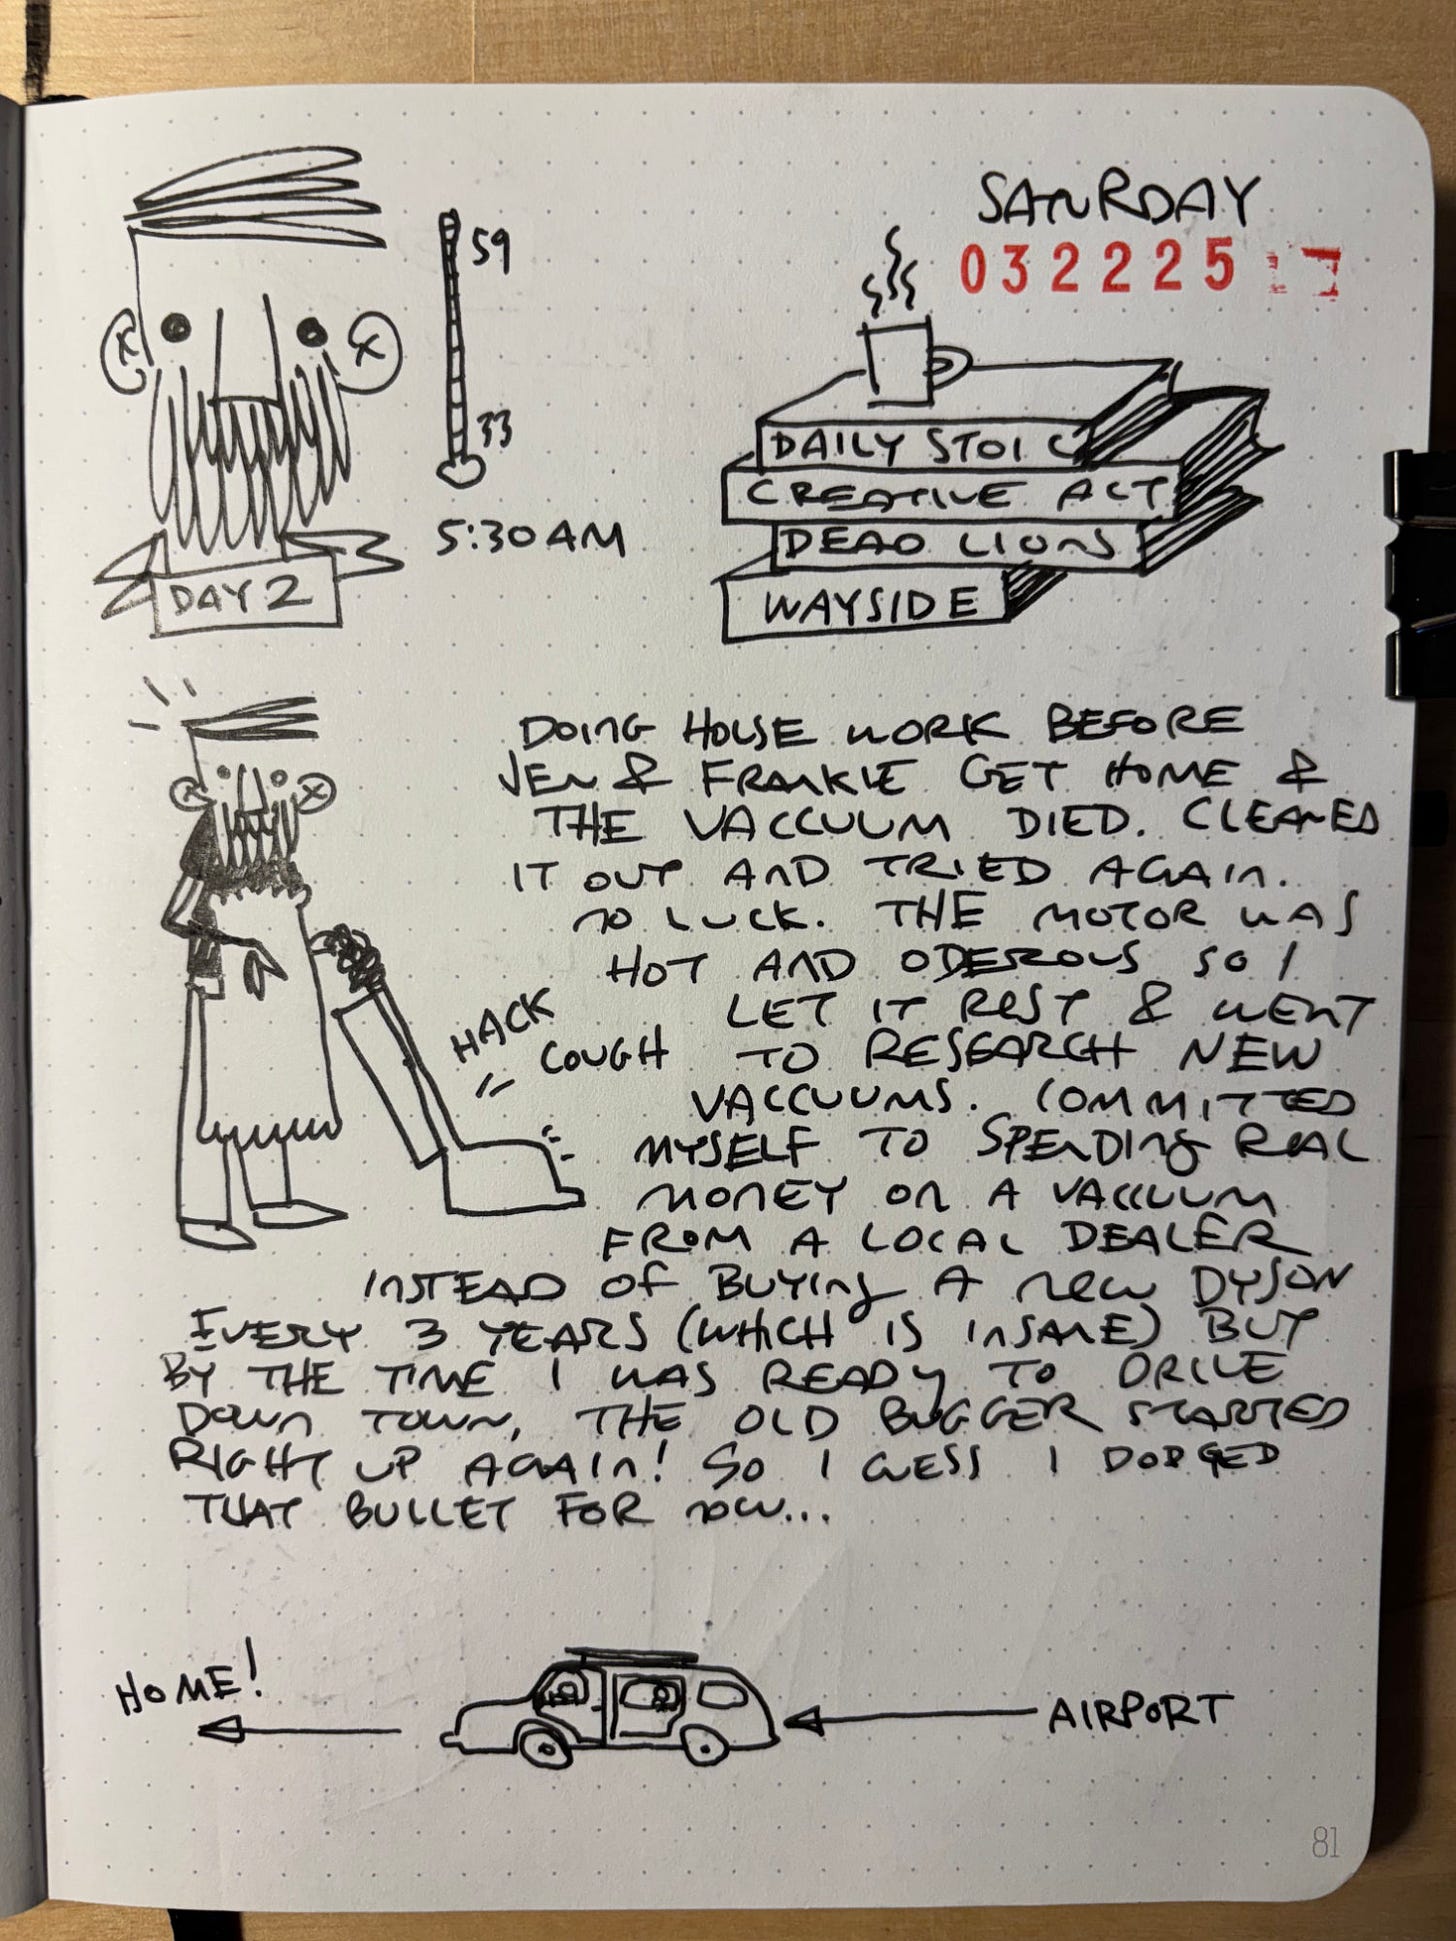 SATURDAY
032225
59
33
5:30AM
DAY 2
DAILY STOIC
CREATIVE ACT
DEAD LIONS
WAYSIDE
DOING HOUSE WORK BEFORE
JEN & FRANKIE GET HOME &
THE VACCUUM DIED. CLEANED
IT OUT AND TRIED AGAIN.
NO LUCK. THE MOTOR WAS
HOT AND ODEROUS SO I
LET IT REST & WENT
TO RESEARCH NEW
VACCUUMS. COMMITTED
MYSELF TO SPENDING REAL
MONEY ON A VACCUUM
FROM A LOCAL DEALER
INSTEAD OF BUYING A NEW DYSON
EVERY 3 YEARS (WHICH IS INSANE) BUT
BY THE TIME I WAS READY TO DRIVE
DOWN TOWN, THE OLD BUGGER STARTED
RIGHT UP AGAIN! SO I GUESS I DODGED
THAT BULLET FOR NOW...
HACK
COUGH
HOME!
AIRPORT
81